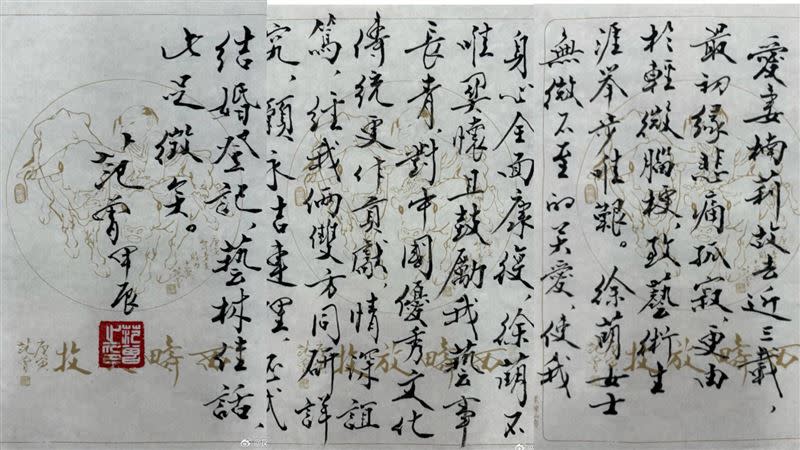 愛妻楠莉故去近三載，
最初緣悲痛孤寂，更由
於輕微腦梗，致藝術生
涯举步唯艱。徐萌女士
無微不至的关爱，使我
身心全面康復，徐萌不
唯契懷且鼓勵我藝事
長青，對中國優秀文化
傳統更作貢獻，情深誼
篤，經我倆雙方同研詳
究，願永吉連里，正式
結婚登記，藝林佳話，
此足徵矣。
范曾甲辰
西疇放牧